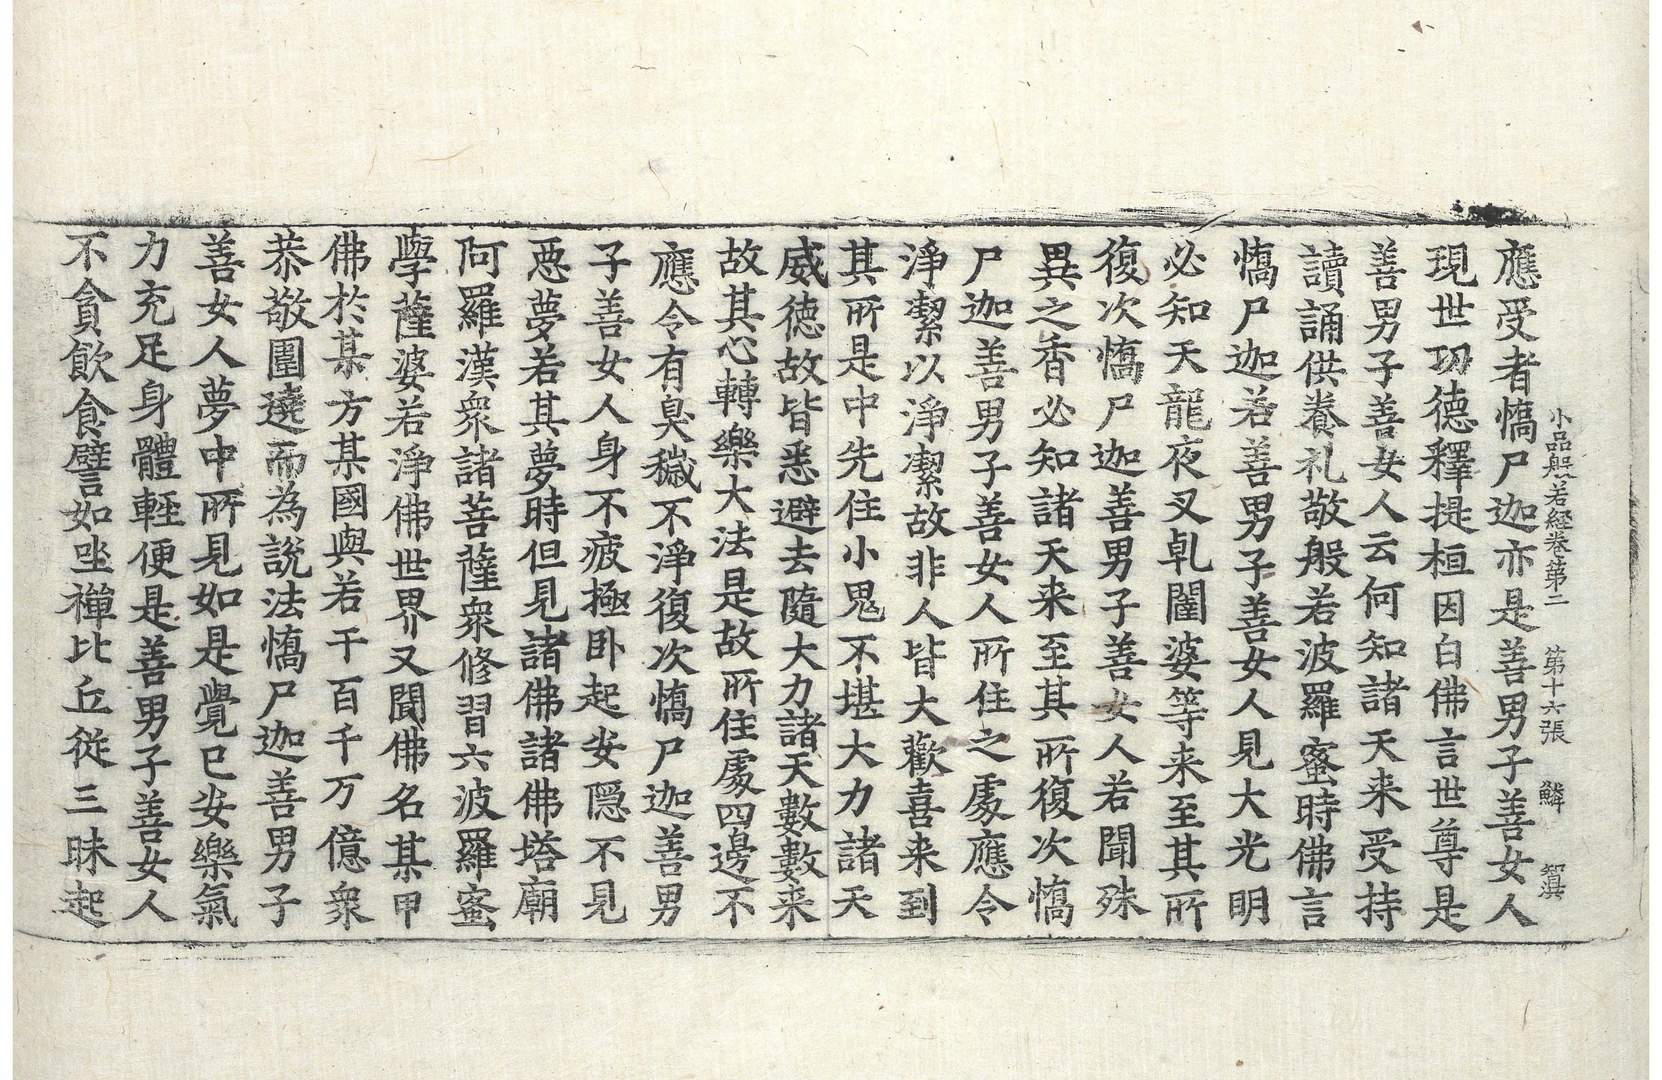 小品般若経卷第二 第十六張 鱗
應受者憍尸迦亦是善男子善女人
現世功德釋提桓因白佛言世尊是
善男子善女人云何知諸天来受持
讀誦供養礼敬般若波羅蜜時佛言
憍尸迦若善男子善女人見大光明
必知天龍夜叉乹闥婆等来至其所
復次憍尸迦善男子善女人若聞殊
異之香必知諸天来至其所復次憍
尸迦善男子善女人所住之處應令
淨潔以淨潔故非人皆大歡喜来到
其所是中先住小鬼不堪大力諸天
威德故皆悉避去隨大力諸天數數来
故其心轉樂大法是故所住處四邊不
應令有臭穢不淨復次憍尸迦善男
子善女人身不疲極卧起安隱不見
惡夢若其夢時但見諸佛諸佛塔廟
阿羅漢衆諸菩薩衆修習六波羅蜜
學薩婆若淨佛世界又聞佛名某甲
佛於某方某國與若干百千万億衆
恭敬圍遶而為說法憍尸迦善男子
善女人夢中所見如是覺已安樂氣
力充足身體輕便是善男子善女人
不貪飲食譬如坐禪比丘從三昧起